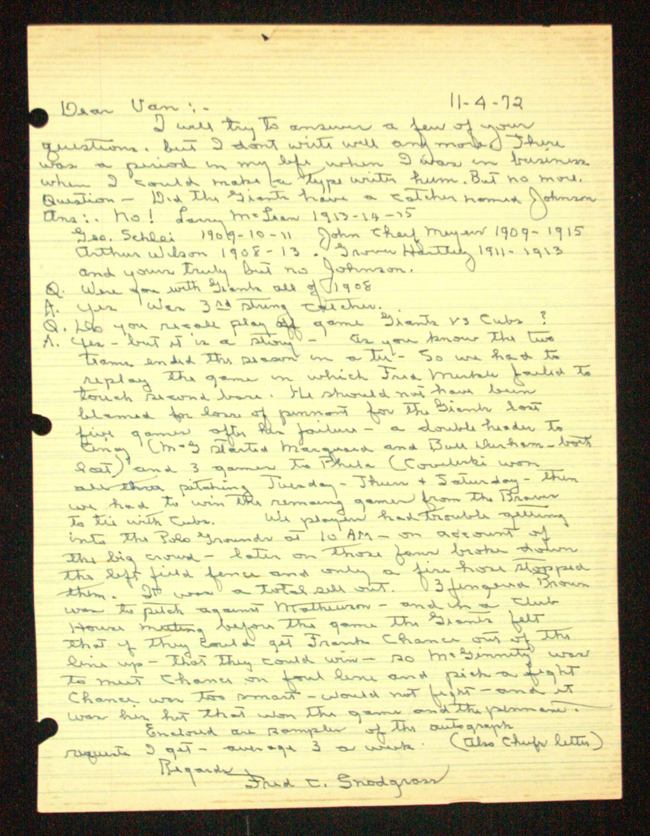 Dear Van:- 11-4-72
I will try to answer a few of your
questions. but I dont write well any more. There
was a period in my life when I was in business
when I could make a type writer hum. But no more.
Question - Did the Giants have a catcher named Johnson
Ans:. No! Larry McLean 1913-14-15
Geo. Schlei 1909-10-11 John Chief Meyers 1909-1915
Arthur Wilson 1908-13. Grover Hartley 1911-1913
and yours truly but no Johnson.
Q. Were you with Giants all of 1908
A. Yes Was 3rd string catcher.
Q. Do you recall play off game Giants vs Cubs?
A. Yes - but it is a story - As you know the two
teams ended the season in a tie - So we had to
replay the game in which Fred Merkle failed to
touch second base. He should not have been
blamed for loss of pennant for the Giants lost
five games after his failure - a double header to
Cincy (McG started Marquard and Bull Durham - both
lost) and 3 games to Phila (Coveleski won
all three pitching Tuesday - Thurs + Saturday - then
we had to win the remaing games from the Braves
to tie with Cubs. We players had trouble getting
into the Polo Grounds at 10 AM - on account of
the big crowd - later on those fans broke down
the left field fence and only a fire hose stopped
them. It was a total sell out. 3 fingered Brown
was to pitch against Mathewson - and in a Club
House meeting before the game the Giants felt
that if they could get Frank Chance out of the
line up - that they could win - so McGinnity was
to meet Chance on foul line and pick a fight
Chance was too smart - would not fight - and it
was his hit that won the game and the pennant.
Enclosed are samples of the autograph
requests I get - average 3 a week. (Also Chief's letter)
Regards,
Fred C. Snodgrass